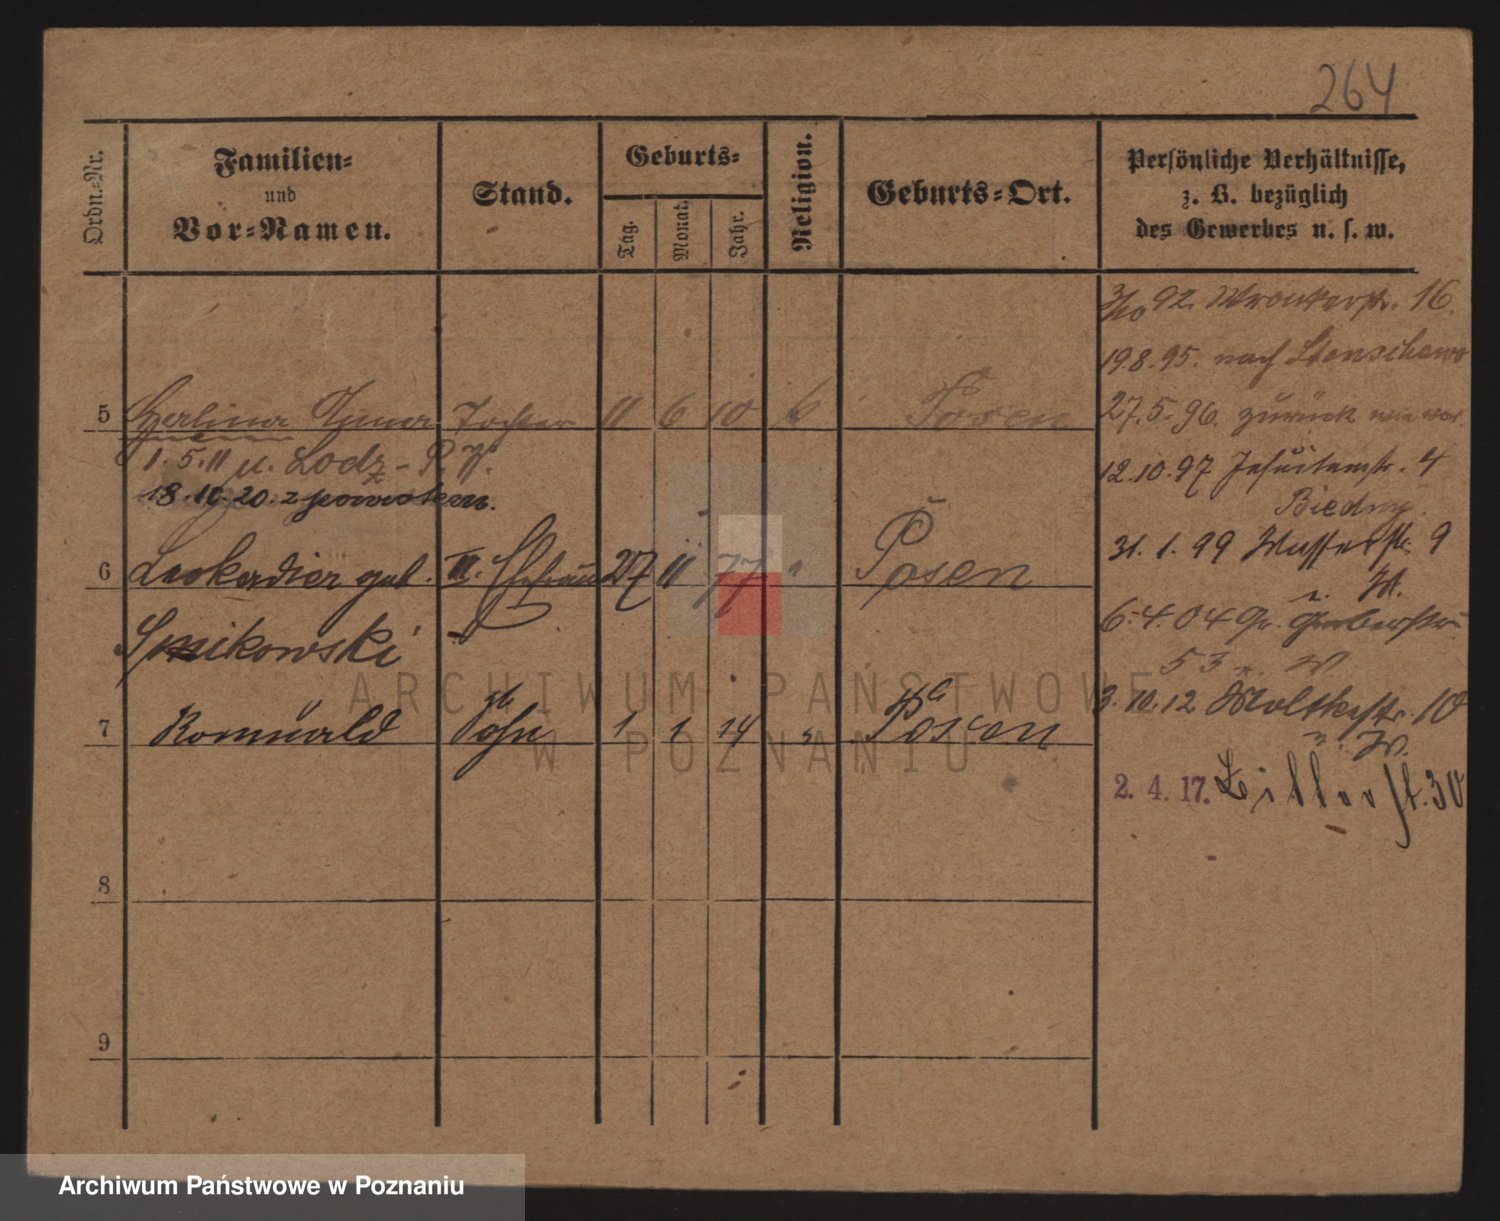 264
Ordn.-Nr.
Familien-
und
Vor-Namen.
Stand.
Geburts-
Tag.
Monat.
Jahr.
Religion.
Geburts-Ort.
Persönliche Verhältnisse,
z. B. bezüglich
des Gewerbes u. s. w.
3/10 92. Wronkerstr. 16.
19.8.95. nach Stenschewo
5 Halina Irma Tochter 11 6 10 k Posen
27.5.96. zurück
1.5.11 u. Lodz - R. P.
12.10.97 Jesuitenstr. 4
18.10.20. z powrotem.
Biedny.
31.1.99 Wasserstr. 9
6 Leokadia geb. III. Ehefrau 27 11 77 " Posen
n. W.
6.4.04 Gr. Gerberstr.
Smikowski
53 n. W
3.10.12 Moltkestr. 10
7 Romuald Sohn 1 1 14 " Posen
n. W.
2. 4. 17. 30
8
9
ARCHIWUM PAŃSTWOWE
W POZNANIU
Archiwum Państwowe w Poznaniu